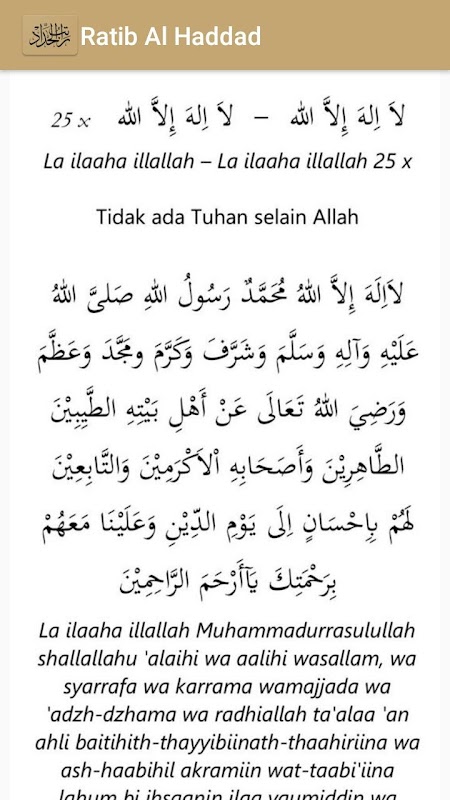 راتب الحداد Ratib Al Haddad
لاَ اِلهَ إِلاَّ الله – لاَ اِلهَ إِلاَّ الله 25 x
La ilaaha illallah – La ilaaha illallah 25 x
Tidak ada Tuhan selain Allah
لاَاِلَهَ إِلاَّ اللهُ مُحَمَّدٌ رَسُولُ اللهِ صَلىَّ اللهُ
عَلَيْهِ وَآلِهِ وَسَلَّمَ وَشَرَّفَ وَكَرَّمَ ومَجَّدَ وَعَظَّمَ
وَرَضِيَ اللهُ تَعَالَى عَنْ أَهْلِ بَيْتِهِ الطَّيِبِيْنَ
الطَّاهِرِيْنَ وَأَصَحَابِهِ اْلاَكْرَمِيْنَ وَالتَّابِعِيْنَ
لَهُمْ بِاِحْسَانٍ اِلَى يَوْمِ الدِّيْنِ وَعَلَيْنَا مَعَهُمْ
بِرَحْمَتِكَ يَآأَرْحَمَ الرَّاحِمِيْنَ
La ilaaha illallah Muhammadurrasulullah
shallallahu 'alaihi wa aalihi wasallam, wa
syarrafa wa karrama wamajjada wa
'adzh-dzhama wa radhiallah ta'alaa 'an
ahli baitihith-thayyibiinath-thaahiriina wa
ash-haabihil akramiin wat-taabi'iina
lahum bi ihsaanin ilaa yaumiddin wa